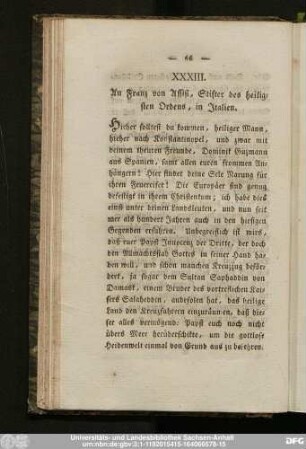 — 66 —
XXXIII.
An Franz von Assisi, Stifter des heilig-
sten Ordens, in Italien.
Hieher solltest du kommen, heiliger Mann,
hieher nach Konstantinopel, und zwar mit
deinem theuren Freunde, Dominik Guzmann
aus Spanien, samt allen euren frommen An-
hängern! Hier findet deine Sele Narung für
ihren Feuereifer! Die Europäer sind genug
befestigt in ihrem Christentum; ich habe dies
eins unter deinen Landsleuten, und nun seit
mer als hundert Jahren auch in den hiesigen
Gegenden erfahren. Unbegreiflich ist mirs,
daß euer Papst Innocenz der Dritte, der doch
den Allmachtsstab Gottes in seiner Hand ha-
ben will, und schon manchen Kreuzzug beför-
dert, ja sogar dem Sultan Saphaddin von
Damask, einem Bruder des vortreflichen Kai-
sers Salaheddin, anbefolen hat, das heilige
Land den Kreuzfahrern einzuräumen, daß die-
ser alles vermögende Papst euch noch nicht
übers Meer herüberschikte, um die gottlose
Heidenwelt einmal von Grund aus zu bekehren.
Universitäts- und Landesbibliothek Sachsen-Anhalt
urn:nbn:de:gbv:3:1-1192015415-164066678-15
DFG